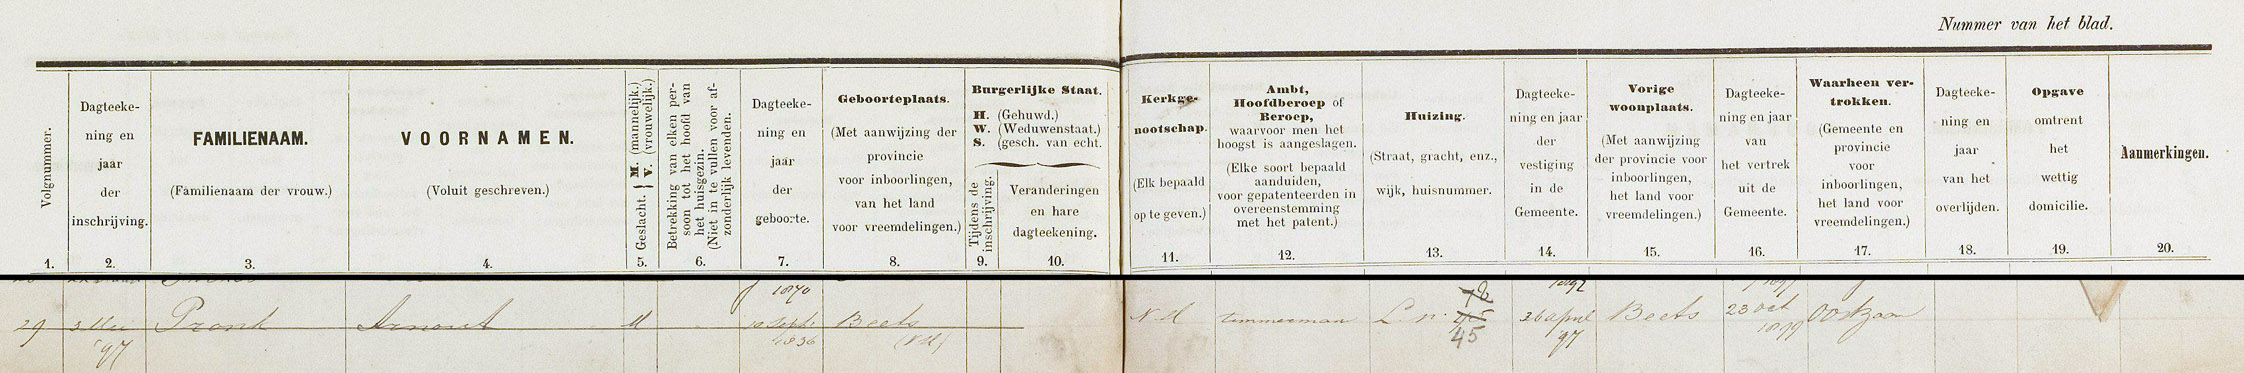 Nummer van het blad.
Volgnummer.
1.
Dagteeke-
ning en
jaar
der
inschrijving.
2.
FAMILIENAAM.
(Familienaam der vrouw.)
3.
VOORNAMEN.
(Voluit geschreven.)
4.
Geslacht. } M. (mannelijk.)
V. (vrouwelijk.)
5.
Betrekking van elken per-
soon tot het hoofd van
het huisgezin.
(Niet in te vullen voor af-
zonderlijk levenden.
6.
Dagteeke-
ning en
jaar
der
geboorte.
7.
Geboorteplaats.
(Met aanwijzing der
provincie
voor inboorlingen,
van het land
voor vreemdelingen.)
8.
Burgerlijke Staat.
H. (Gehuwd.)
W. (Weduwenstaat.)
S. (gesch. van echt.
Tijdens de
inschrijving.
9.
Veranderingen
en hare
dagteekening.
10.
Kerkge-
nootschap.
(Elk bepaald
op te geven.)
11.
Ambt,
Hoofdberoep of
Beroep,
waarvoor men het
hoogst is aangeslagen.
(Elke soort bepaald
aanduiden,
voor gepatenteerden in
overeenstemming
met het patent.)
12.
Huizing.
(Straat, gracht, enz.,
wijk, huisnummer.
13.
Dagteeke-
ning en jaar
der
vestiging
in de
Gemeente.
14.
Vorige
woonplaats.
(Met aanwijzing
der provincie voor
inboorlingen,
het land voor
vreemdelingen.)
15.
Dagteeke-
ning en jaar
van
het vertrek
uit de
Gemeente.
16.
Waarheen ver-
trokken.
(Gemeente en
provincie
voor
inboorlingen,
het land voor
vreemdelingen.)
17.
Dagteeke-
ning en
jaar
van het
overlijden.
18.
Opgave
omtrent
het
wettig
domicilie.
19.
Aanmerkingen.
20.
1870
29 3 Mei Pronk Arnout M 10 Sept. Beets
'97 1836 (NH)
NH timmerman L. n. 45 26 April Beets 23 Oct Oostzaan
'97 1899